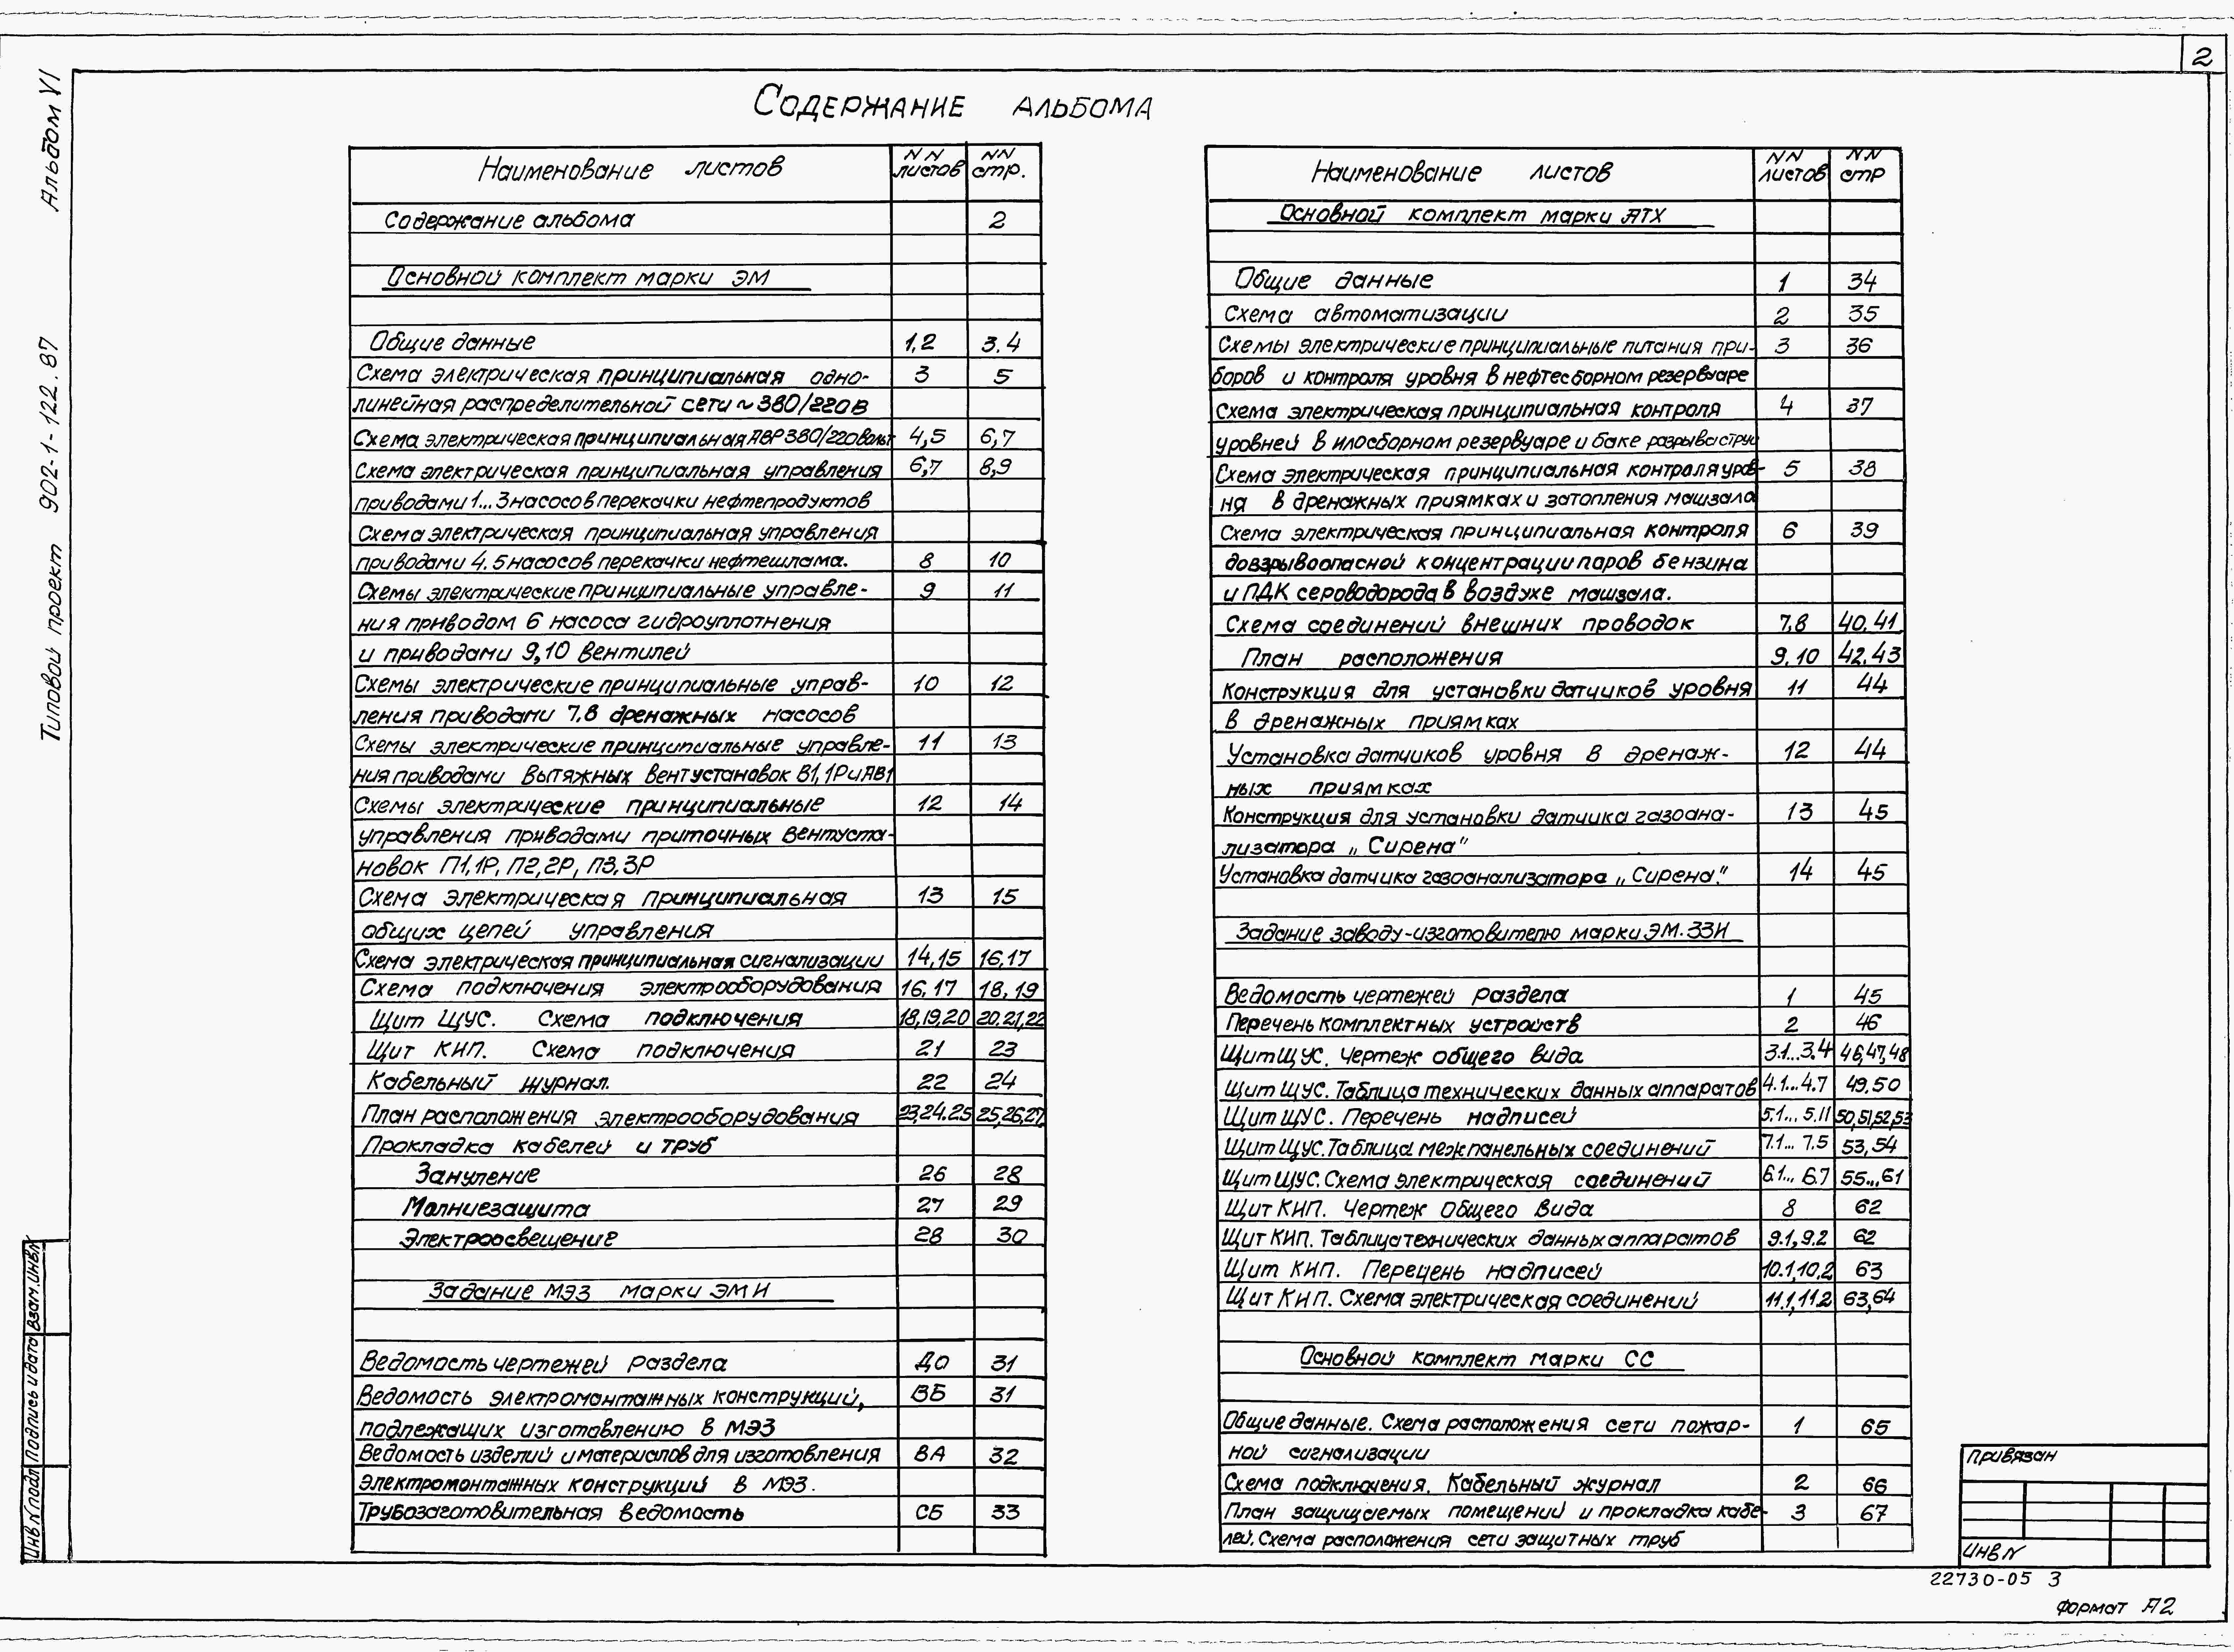 2
Альбом VI
Типовой проект 902-1-122.87
Содержание альбома
Наименование листов NN листов NN стр.
Содержание альбома 2
Основной комплект марки ЭМ
Общие данные 1,2 3.4
Схема электрическая принципиальная одно- 3 5
линейная распределительной сети ~380/220В
Схема электрическая принципиальная АВР 380/220вольт 4,5 6,7
Схема электрическая принципиальная управления 6,7 8,9
приводами 1...3 насосов перекачки нефтепродуктов
Схема электрическая принципиальная управления
приводами 4.5 насосов перекачки нефтешлама. 8 10
Схемы электрические принципиальные управле- 9 11
ния приводом 6 насоса гидроуплотнения
и приводами 9,10 вентилей
Схемы электрические принципиальные управ- 10 12
ления приводами 7,8 дренажных насосов
Схемы электрические принципиальные управле- 11 13
ния приводами вытяжных вентустановок В1, 1Р и АВ1
Схемы электрические принципиальные 12 14
управления приводами приточных вентуста-
новок П1, 1Р, П2, 2Р, П3, 3Р
Схема электрическая принципиальная 13 15
общих цепей управления
Схема электрическая принципиальная сигнализации 14,15 16,17
Схема подключения электрооборудования 16,17 18,19
Щит ЩУС. Схема подключения 18,19,20 20,21,22
Щит КИП. Схема подключения 21 23
Кабельный журнал. 22 24
План расположения электрооборудования 23,24.25 25,26,27
Прокладка кабелей и труб
Зануление 26 28
Молниезащита 27 29
Электроосвещение 28 30
Задание МЭЗ марки ЭМИ
Ведомость чертежей раздела ДО 31
Ведомость электромонтажных конструкций, ВБ 31
подлежащих изготовлению в МЭЗ
Ведомость изделий и материалов для изготовления ВА 32
электромонтажных конструкций в МЭЗ.
Трубозаготовительная ведомость СБ 33
Наименование листов NN листов NN стр
Основной комплект марки АТХ
Общие данные 1 34
Схема автоматизации 2 35
Схемы электрические принципиальные питания при- 3 36
боров и контроля уровня в нефтесборном резервуаре
Схема электрическая принципиальная контроля 4 37
уровней в илосборном резервуаре и баке разрыва струи
Схема электрическая принципиальная контроля уров- 5 38
ня в дренажных приямках и затопления машзала
Схема электрическая принципиальная контроля 6 39
довзрывоопасной концентрации паров бензина
и ПДК сероводорода в воздухе машзала.
Схема соединений внешних проводок 7,8 40,41
План расположения 9,10 42,43
Конструкция для установки датчиков уровня 11 44
в дренажных приямках
Установка датчиков уровня в дренаж- 12 44
ных приямках
Конструкция для установки датчика газоана- 13 45
лизатора „Сирена"
Установка датчика газоанализатора „Сирена." 14 45
Задание заводу-изготовителю марки ЭМ.ЗЗИ
Ведомость чертежей раздела 1 45
Перечень комплектных устройств 2 46
Щит ЩУС. Чертеж общего вида 3.1...3.4 46,47,48
Щит ЩУС. Таблица технических данных аппаратов 4.1...4.7 49.50
Щит ЩУС. Перечень надписей 5.1...5.11 50,51,52,53
Щит ЩУС. Таблица межпанельных соединений 7.1...7.5 53,54
Щит ЩУС. Схема электрическая соединений 6.1...6.7 55...61
Щит КИП. Чертеж общего вида 8 62
Щит КИП. Таблица технических данных аппаратов 9.1,9.2 62
Щит КИП. Перечень надписей 10.1,10.2 63
Щит КИП. Схема электрическая соединений 11.1,11.2 63,64
Основной комплект марки СС
Общие данные. Схема расположения сети пожар- 1 65
ной сигнализации
Схема подключения. Кабельный журнал 2 66
План защищаемых помещений и прокладка кабе- 3 67
лей. Схема расположения сети защитных труб
Инв N подл Подпись и дата Взам.инв N
Привязан
ИНВ N
22730-05 3
Формат А2